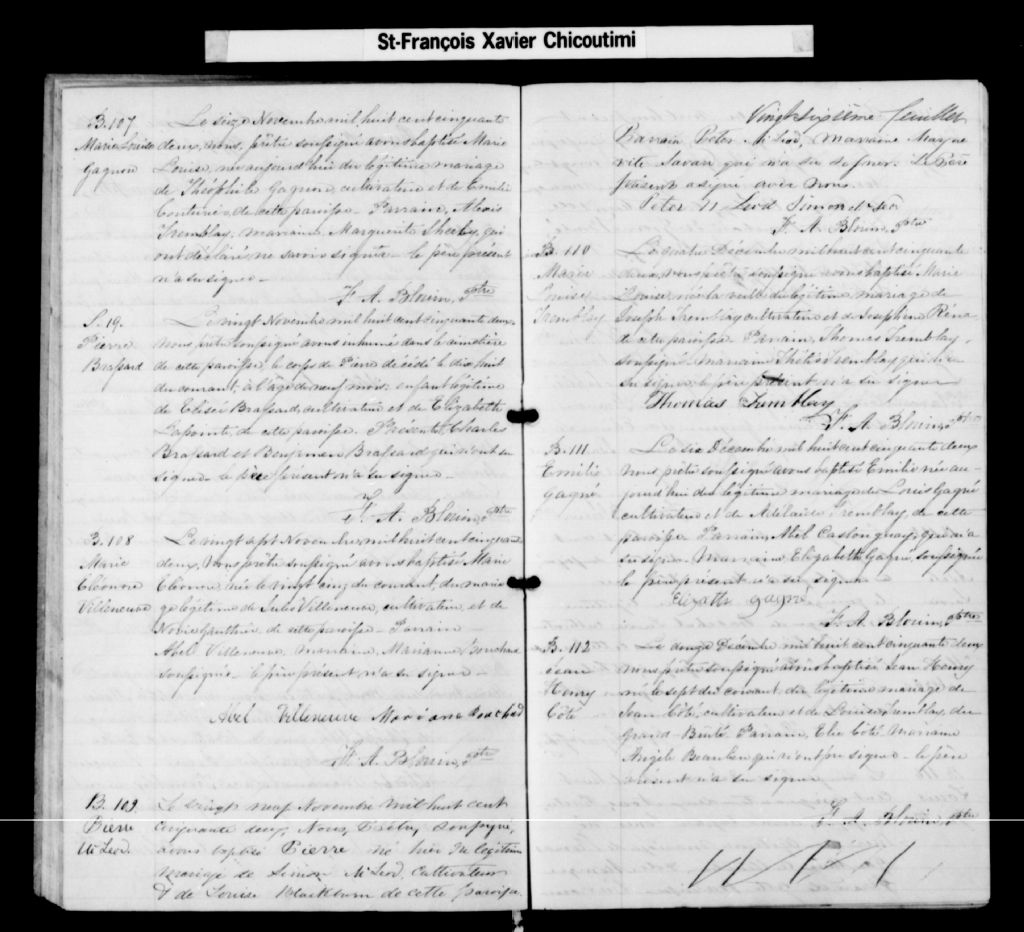 St-François Xavier Chicoutimi
B. 107
Marie Louise
Gagnon
Le seize Novembre mil huit cent cinquante
deux, nous, prêtre soussigné avons baptisé Marie
Louise, née aujourd'hui du légitime mariage
de Théophile Gagnon cultivateur et de Emilie
Couturier de cette paroisse. Parrain, Alexis
Tremblay, marraine, Marguerite Sheehy, qui
ont déclaré ne savoir signer. le père présent
n'a su signer.
F. A. Blouin, Ptre
S. 19.
Pierre
Brassard
Le vingt Novembre mil huit cent cinquante deux,
nous prêtre soussigné avons inhumé dans le cimetière
de cette paroisse, le corps de Pierre décédé le dix huit
du courant, à l'âge de neuf mois, enfant légitime
de Elisée Brassard, cultivateur et de Elizabeth
Lapointe, de cette paroisse. Présents, Charles
Brassard et Benjamin Brassard qui n'ont su
signer. le père présent n'a su signer.
F. A. Blouin, Ptre
B. 108
Marie
Eléonore
Villeneuve
Le vingt sept Novembre mil huit cent cinquante
deux, Nous prêtre soussigné avons baptisé Marie
Eléonore née le vingt cinq du courant, du maria-
ge légitime de Jules Villeneuve, cultivateur et de
Gauthier de cette paroisse. Parrain
Abel Villeneuve, marraine, Marianne Bouchard
soussignés. le père présent n'a su signer.
Abel Villeneuve Mariane Bouchad
F. A. Blouin, Ptre
B. 109
Pierre
McLeod.
Le vingt neuf Novembre mil huit cent
cinquante deux, Nous, Prêtre, soussigné,
avons baptisé Pierre né hier du légitime
mariage de Simon McLeod, Cultivateur
& de Louise Blackburn de cette paroisse.
Vingt sixième feuillet
Parrain Peter McLeod, marraine Margue-
rite Savard qui n'a su signer. Le Père
présent a signé avec nous.
Peter McLeod Simon McLeod
F. A. Blouin, Ptre
B. 110
Marie
Louise
Tremblay
Le quatre Décembre mil huit cent cinquante
deux, nous prêtre soussigné avons baptisé Marie
Louise, née la veille du légitime mariage de
Joseph Tremblay cultivateur et de Josephine
de cette paroisse. Parrain, Thomas Tremblay,
soussigné, marraine Tremblay, qui n'a
su signer, le père présent n'a su signer
Thomas Tremblay
F. A. Blouin, Ptre
B. 111
Emilie
Gagné
Le six Décembre mil huit cent cinquante deux
nous prêtre soussigné avons baptisé Emilie née au-
jourd'hui du légitime mariage de Louis Gagné
cultivateur et de Adelaide Tremblay, de cette
paroisse. Parrain, Abel Castonguay, qui n'a
su signer. Marraine Elizabeth Gagné, soussignée
le père présent n'a su signer.
Elizabth gagné
F. A. Blouin, Ptre
B. 112
Jean
Henry
Côté
Le douze Décembre mil huit cent cinquante deux
nous prêtre soussigné avons baptisé Jean Henry
né le sept du courant du légitime mariage de
Jean Côté, cultivateur et de Louise Tremblay, du
Grand Brûlé. Parrain, Elie Côté. Marraine
Angèle Beaulieu qui n'ont pu signer. le père
présent n'a su signer
F. A. Blouin, Ptre